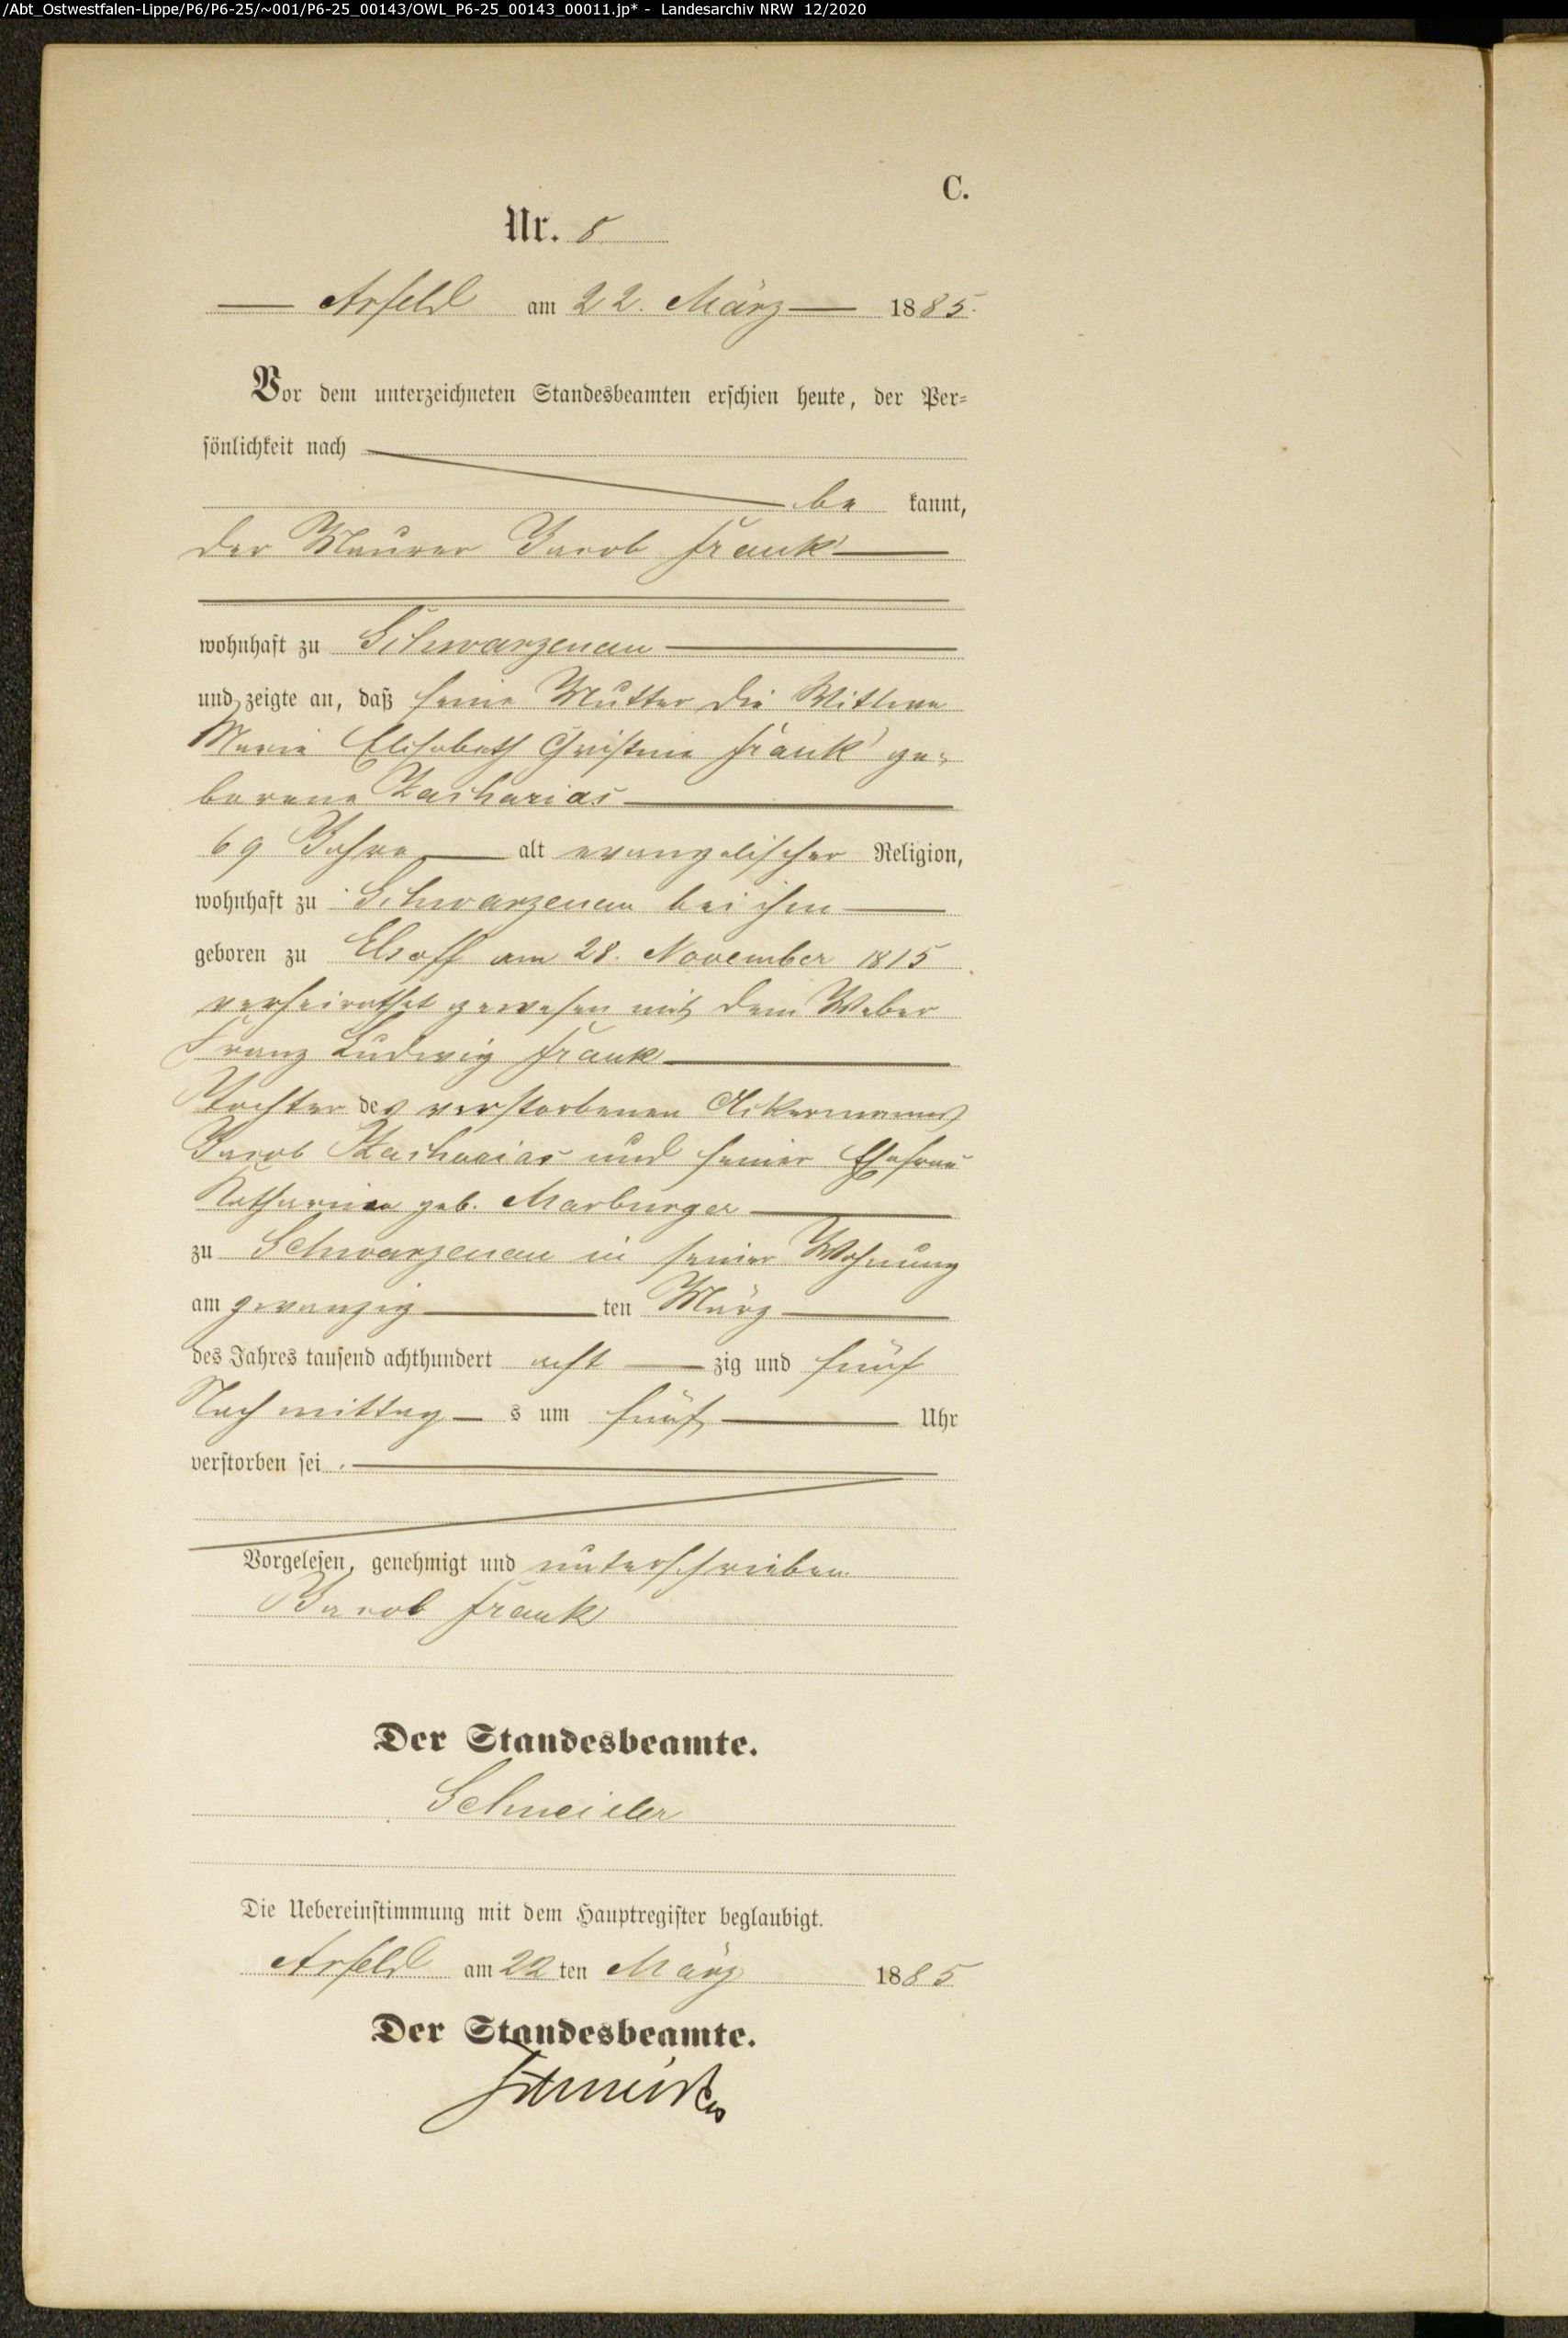 /Abt_Ostwestfalen-Lippe/P6/P6-25/~001/P6-25_00143/OWL_P6-25_00143_00011.jp* - Landesarchiv NRW 12/2020
C.
Nr. 8
Arfeld am 22. März 1885.
Vor dem unterzeichneten Standesbeamten erschien heute, der Per-
sönlichkeit nach
be kannt,
der Maurer Jacob Frank
wohnhaft zu Schwarzenau
und zeigte an, daß seine Mutter die Wittwe
Marie Elisabeth Christine Frank ge-
borene Zacharias
69 Jahre alt evangelischer Religion,
wohnhaft zu Schwarzenau bei ihm
geboren zu Elsoff am 28. November 1815
verheirathet gewesen mit dem Weber
Franz Ludwig Frank
Tochter des verstorbenen Ackermannes
Jacob Zacharias und seiner Ehefrau
Katharina geb. Marburger
zu Schwarzenau in seiner Wohnung
am zwanzig ten März
des Jahres tausend achthundert acht zig und fünf
Nachmittag s um fünf Uhr
verstorben sei.
Vorgelesen, genehmigt und unterschrieben
Jacob Frank
Der Standesbeamte.
Schneider
Die Uebereinstimmung mit dem Hauptregister beglaubigt.
Arfeld am 22 ten März 1885
Der Standesbeamte.
Schneider